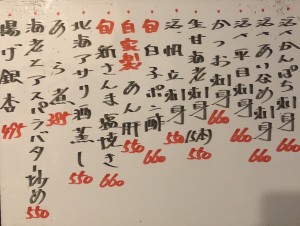 活〆かんぱち刺身
活〆あいなめ刺身 660
活〆平目刺身 660
かつお刺身 660
生甘海老刺身(5本) 550
活帆立刺身 550
旬 白子ポン酢 660
自家製 あん肝 550
旬 新さんま塩焼き 660
北海アサリ酒蒸し 550
あら煮 385
海老とアスパラバター炒め 550
揚げ銀杏 495